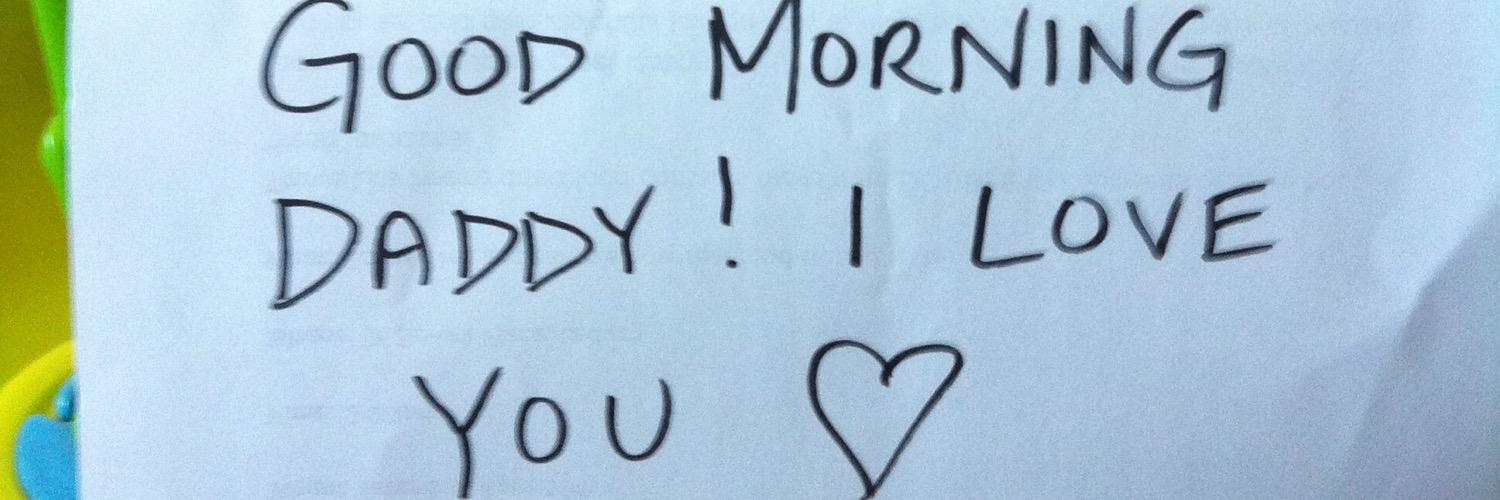 GOOD MORNING
DADDY! I LOVE
YOU ♡